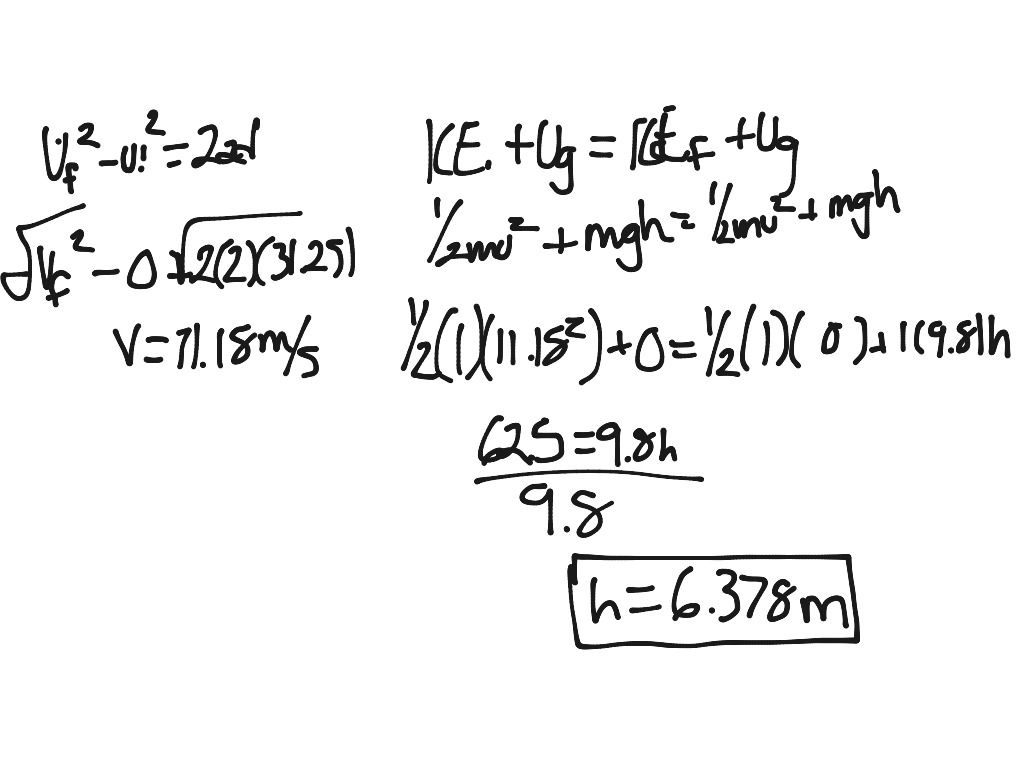 Vf² - Vi² = 2ad
√Vf² - 0 = √2(2)(31.25)
V = 11.18 m/s
KE + Ug = KEf + Ug
1/2mv² + mgh = 1/2mv² + mgh
1/2(1)(11.18²) + 0 = 1/2(1)(0) + 1(9.8)h
62.5 = 9.8h
9.8
h = 6.378m